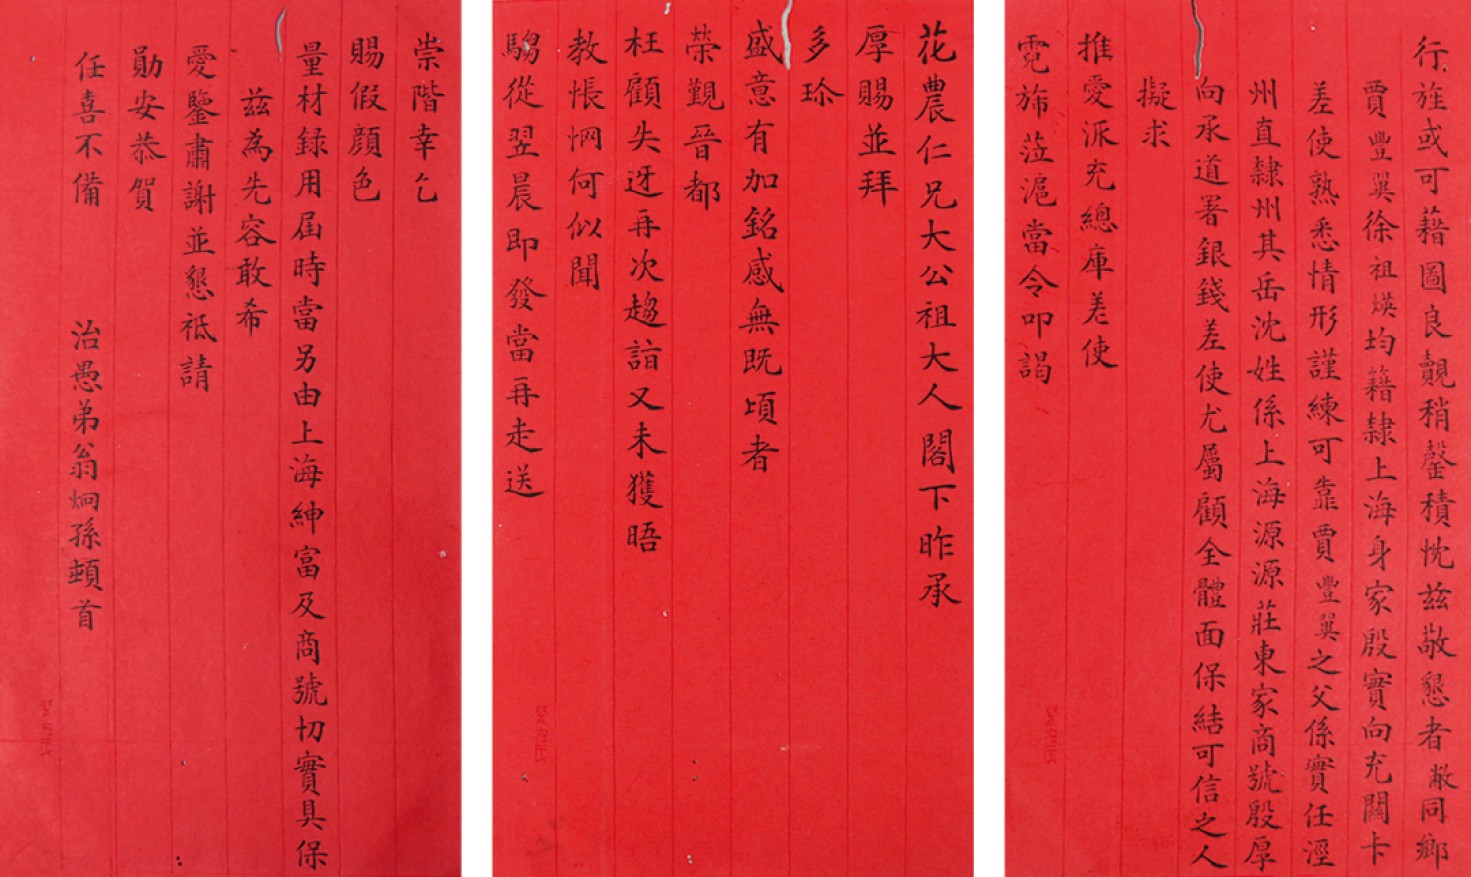 花農仁兄大公祖大人閣下昨承
厚賜並拜
多珍
盛意有加銘感無既頃者
榮覲晉都
枉顧失迓再次趨詣又未獲晤
教悵惘何似聞
騶從翌晨即發當再走送
行旌或可藉圖良覿稍罄積忱茲敬懇者敝同鄉
賈豐翼徐祖煐均籍隸上海身家殷實向充關卡
差使熟悉情形謹練可靠賈豐翼之父係實任涇
州直隸州其岳沈姓係上海源源莊東家商號殷厚
向承道署銀錢差使尤屬顧全體面保結可信之人
擬求
推愛派充總庫差使
霓旆蒞滬當令叩謁
崇階幸乞
賜假顏色
量材録用届時當另由上海紳富及商號切實具保
茲為先容敢希
愛鑒肅謝並懇祗請
勛安恭賀
任喜不備
治愚弟翁炯孫頓首